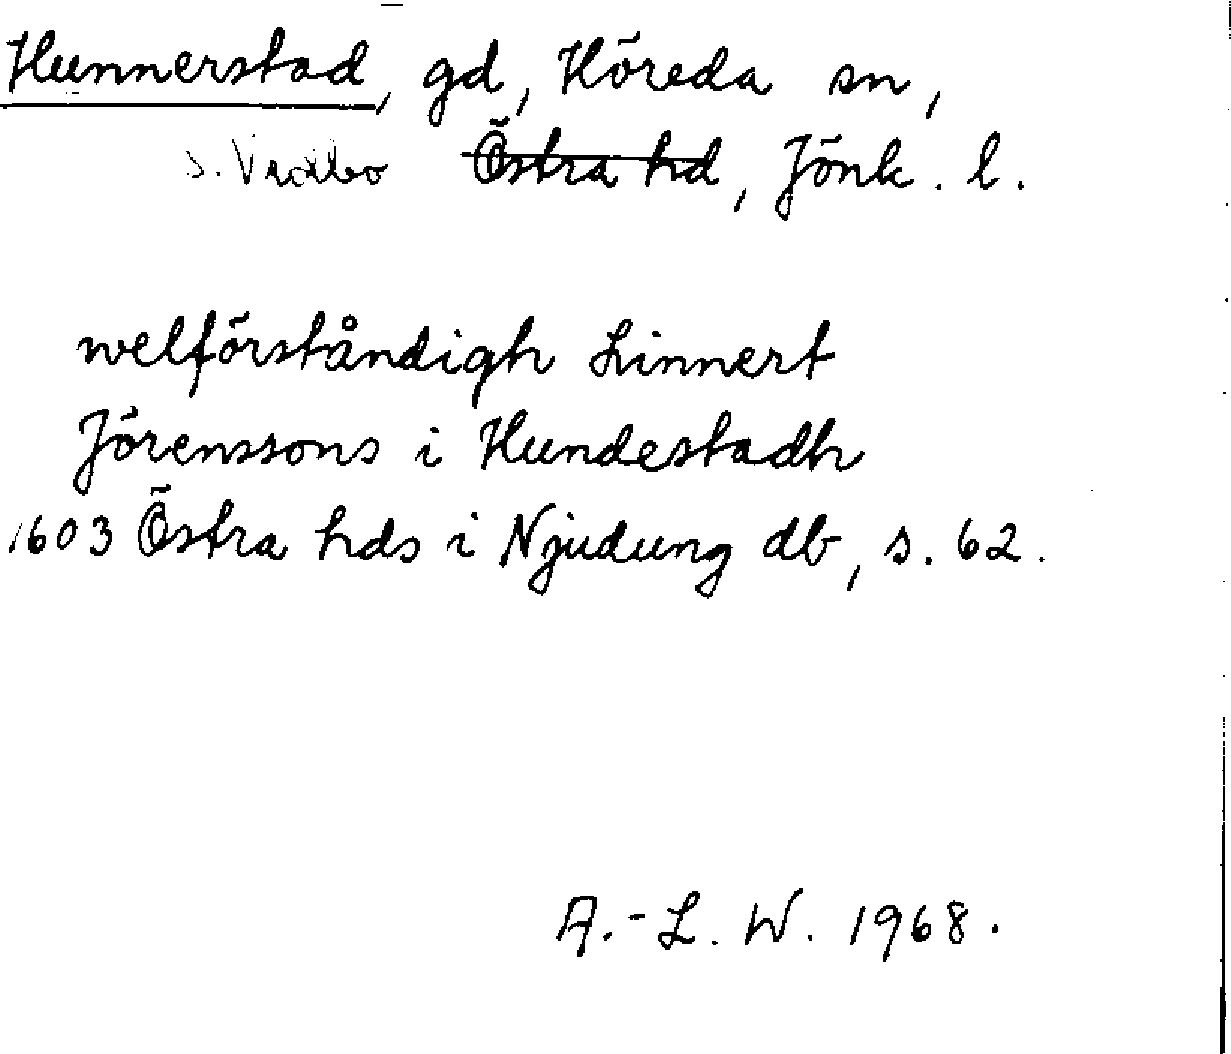 Hunnerstad, gd, Höreda sn,
S. Vedbo Östra hd, Jönk. l.
welförståndigh Linnert
Jörenssons i Hundestadh
1603 Östra hds i Njudung db, s. 62.
A.-L. W. 1968.